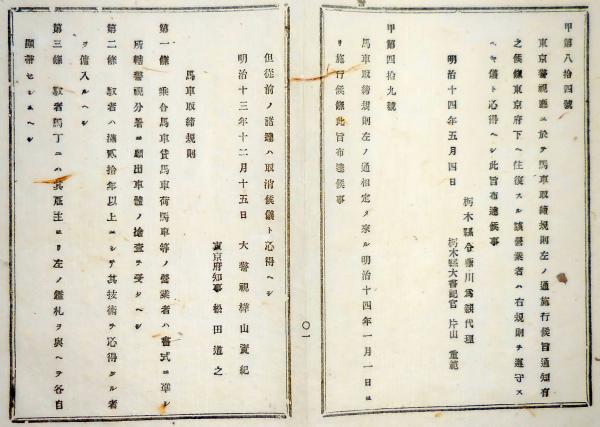 甲第八拾四號
東京警視廳ニ於テ馬車取締規則左ノ通施行候旨通知有
之候條東京府下ヘ往復スル該營業者ハ右規則ヲ遵守ス
ヘキ儀ト心得ヘシ此旨布達候事
明治十四年五月四日
栃木縣令藤川爲親代理
栃木縣大書記官 片山重範
甲第四拾九號
馬車取締規則左ノ通相定メ來ル明治十四年一月一日ヨ
リ施行候條此旨布達候事
〇一
但從前ノ諸達ハ取消候儀ト心得ヘシ
明治十三年十二月十五日 大警視樺山資紀
東京府知事 松田道之
馬車取締規則
第一條 乘合馬車貸馬車荷馬車等ノ營業者ハ書式ニ準シ
所轄警視分署ニ願出車體ノ檢査ヲ受クヘシ
第二條 馭者ハ滿貳拾年以上ニシテ其技術ヲ心得タル者
ヲ傭入ルヘシ
第三條 馭者馬丁ニハ其雇主ヨリ左ノ鑑札ヲ與ヘテ各自
ニセシムヘシ